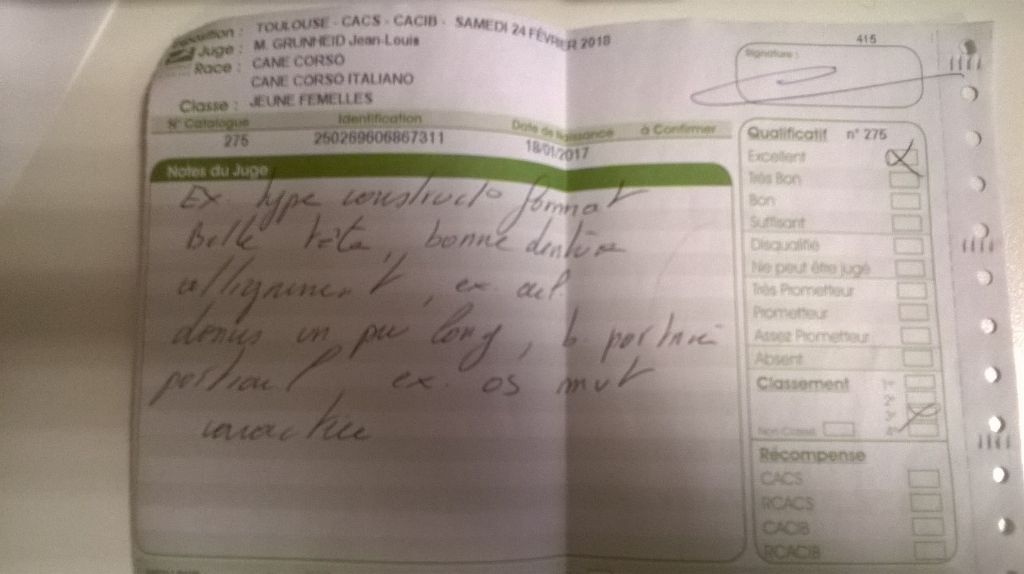 Exposition : TOULOUSE - CACS - CACIB - SAMEDI 24 FÉVRIER 2018
Juge : M. GRUNHEID Jean-Louis
Race : CANE CORSO
CANE CORSO ITALIANO
Classe : JEUNE FEMELLES
415
Signature :
N° Catalogue Identification Date de Naissance à Confirmer
275 250269606867311 18/01/2017
Notes du Juge
Ex. type construct° format
Belle tête, bonne denture
ex. œil
dessus un peu long, b. poitrine
ex. os mvt
Qualificatif n° 275
Excellent
Très Bon
Bon
Suffisant
Disqualifié
Ne peut être jugé
Très Prometteur
Prometteur
Assez Prometteur
Absent
Classement 1er
2e
3e
Non Classé 4e
Récompense
CACS
RCACS
CACIB
RCACIB